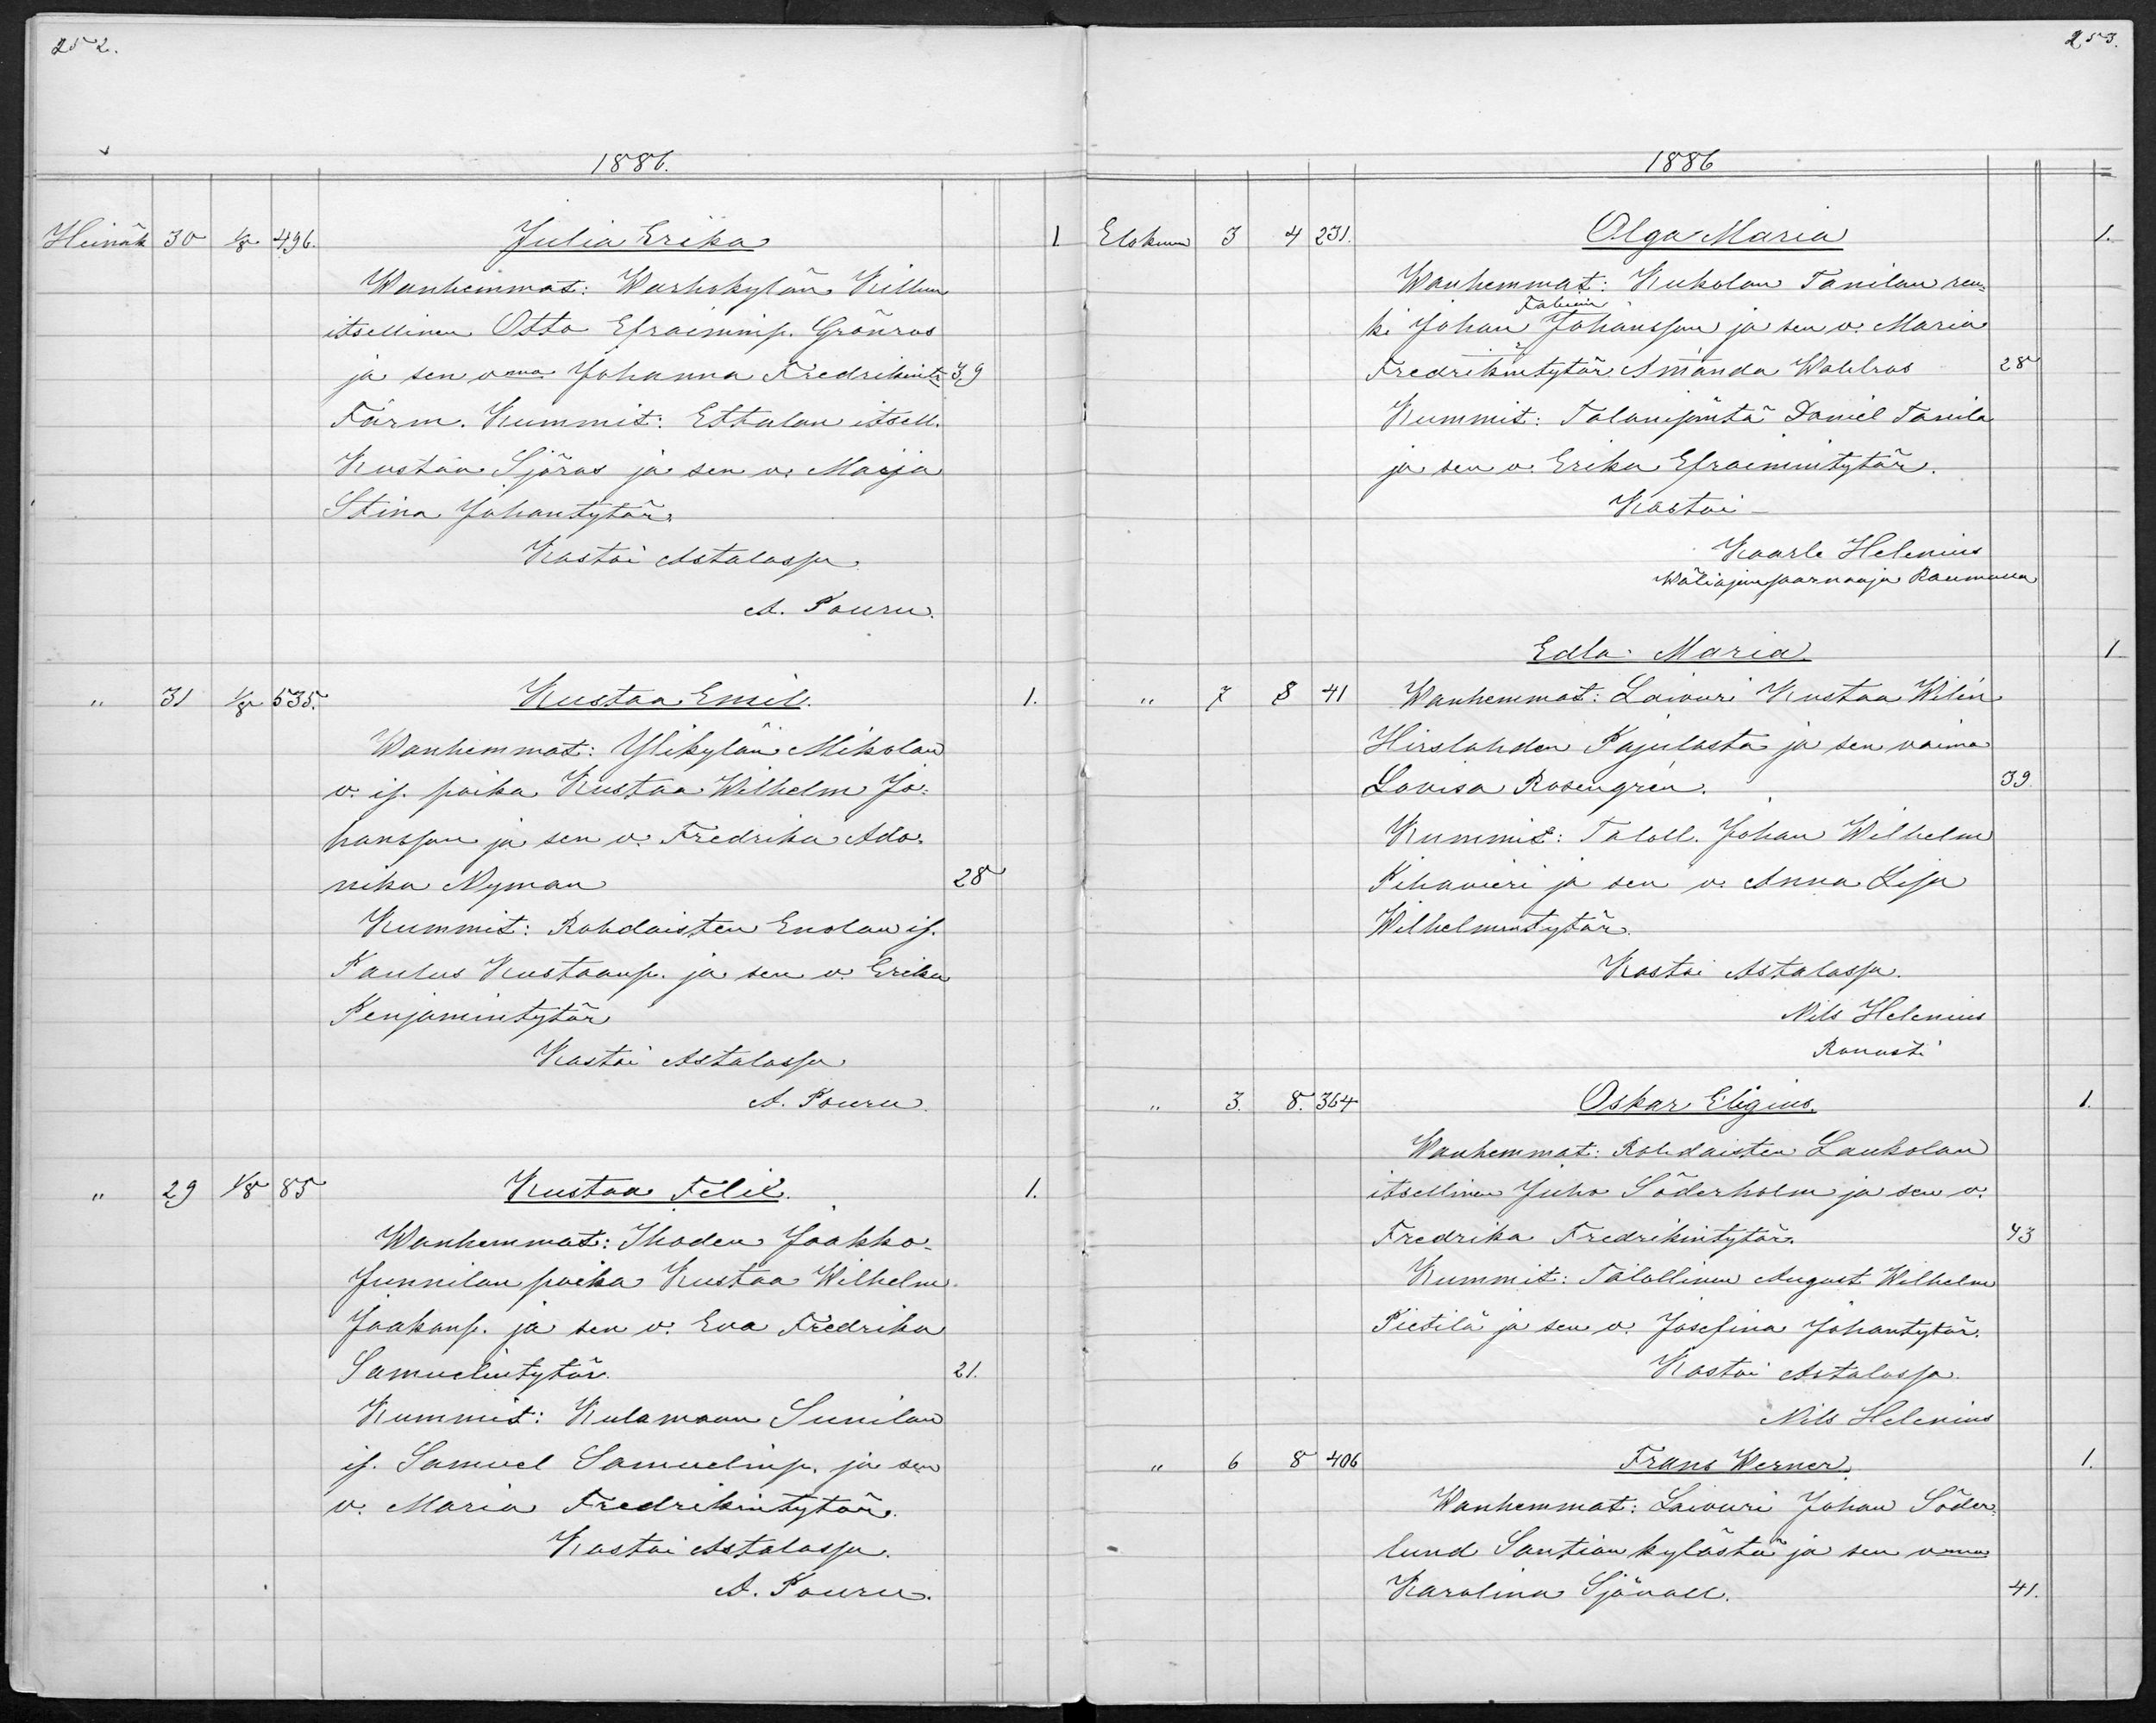 252.
1886.
Heinäk 30 1/8 496. Julia Erika 1
Wanhemmat: Warhokylän Killun
itsellinen Otto Efraiminp. Grönroos
ja sen vmo Johanna Fredrikint. 39
Färm. Kummit: Ettalan itsell.
Kustaa Sjöros ja sen v. Maija
Stina Johantytär.
Kastoi Astalassa
A. Pouru.
" 31 1/8 535. Kustaa Emil. 1.
Wanhemmat: Ylikylän Mikolan
v. is. poika Kustaa Wilhelm Jo-
hansson ja sen v. Fredrika Ado-
nika Nyman 28
Kummit: Rohdaisten Enolan is.
Paulus Kustaanp. ja sen v. Erika
Penjamintytär
Kastoi Astalassa
A. Pouru.
" 29 1/8 85 Kustaa Felix. 1.
Wanhemmat: Ihoden Jaakko-
Junnilan poika Kustaa Wilhelm
Jaakonp. ja sen v. Eva Fredrika
Samuelintytär. 21.
Kummit: Kulamaan Sunilan
is. Samuel Samuelinp. ja sen
v. Maria Fredrikintytär.
Kastoi Astalassa.
A. Pouru.
253.
1886
Elokuun 3 4 231. Olga Maria 1.
Wanhemmat: Kukolan Tanilan ren-
ki Johan Johansson ja sen v. Maria
Fredrikintytär Amanda Wahlros 28
Kummit: Talonisäntä Daniel Tanila
ja sen v. Erika Efraimintytär.
Kastoi
Kaarle Helenius
Wäliajansaarnaaja Raumalla
Edla Maria 1
" 7 8 41 Wanhemmat: Laivuri Kustaa Wilén
Hirslahden Pajulasta ja sen vaimo
Lovisa Rosengrén. 39.
Kummit: Taloll. Johan Wilhelm
Pihavieri ja sen v. Anna Lisa
Wilhelmintytär.
Kastoi Astalassa.
Nils Helenius
Rovasti
" 3. 8. 364 Oskar Eligius. 1.
Wanhemmat: Rohdaisten Laukolan
itsellinen Juho Söderholm ja sen v.
Fredrika Fredrikintytär. 43
Kummit: Talollinen August Wilhelm
Pietilä ja sen v. Josefina Johantytär.
Kastoi Astalassa.
Nils Helenius
" 6 8 406 Frans Werner. 1.
Wanhemmat: Laivuri Johan Söder-
lund Santian kylästä ja sen vmo
Karolina Sjövall. 41.